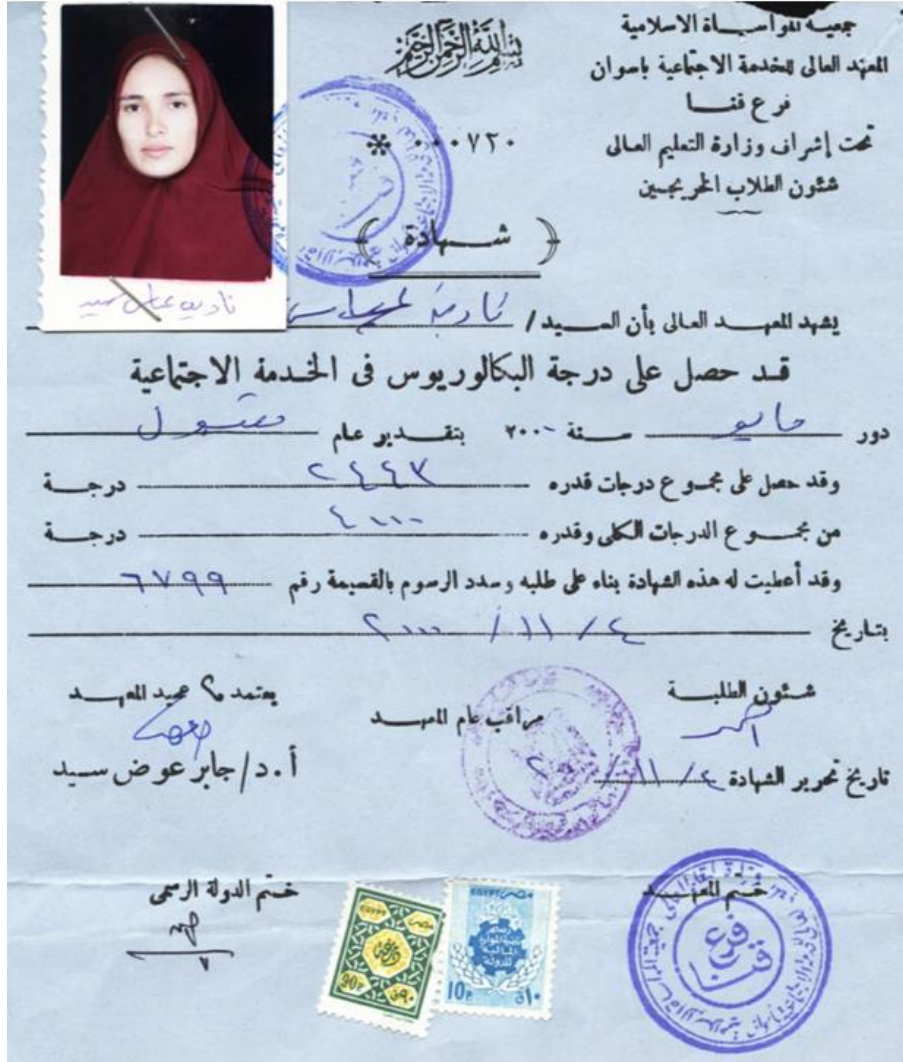 جمعية المواساة الاسلامية
المعهد العالى للخدمة الاجتماعية باسوان
فرع قنا
تحت إشراف وزارة التعليم العالى
شئون الطلاب الخريجين
بسم الله الرحمن الرحيم
* ٠٠٠٧٢٠
( شهادة )
نادية عباس سيد
يشهد المعهد العالى بأن السيد / نادية عباس
قد حصل على درجة البكالوريوس فى الخدمة الاجتماعية
دور مايو سنة ٢٠٠٠ بتقدير عام مقبول
وقد حصل على مجموع درجات قدره ٢٤٤٣ درجة
من مجموع الدرجات الكلى وقدره ٤٠٠٠ درجة
وقد أعطيت له هذه الشهادة بناء على طلبه وسدد الرسوم بالقسيمة رقم ٦٧٩٩
بتاريخ ٤ / ١١ / ٢٠٠٠
شئون الطلبة
مراقب عام المعهد
يعتمد ،، عميد المعهد
أ.د/ جابر عوض سيد
تاريخ تحرير الشهادة ٤ / ١١ /
ختم المعهد
ختم الدولة الرسمى
فرع
قنا
EGYPT مصر
10P ١٠ق
EGYPT
90P ٩٠ق